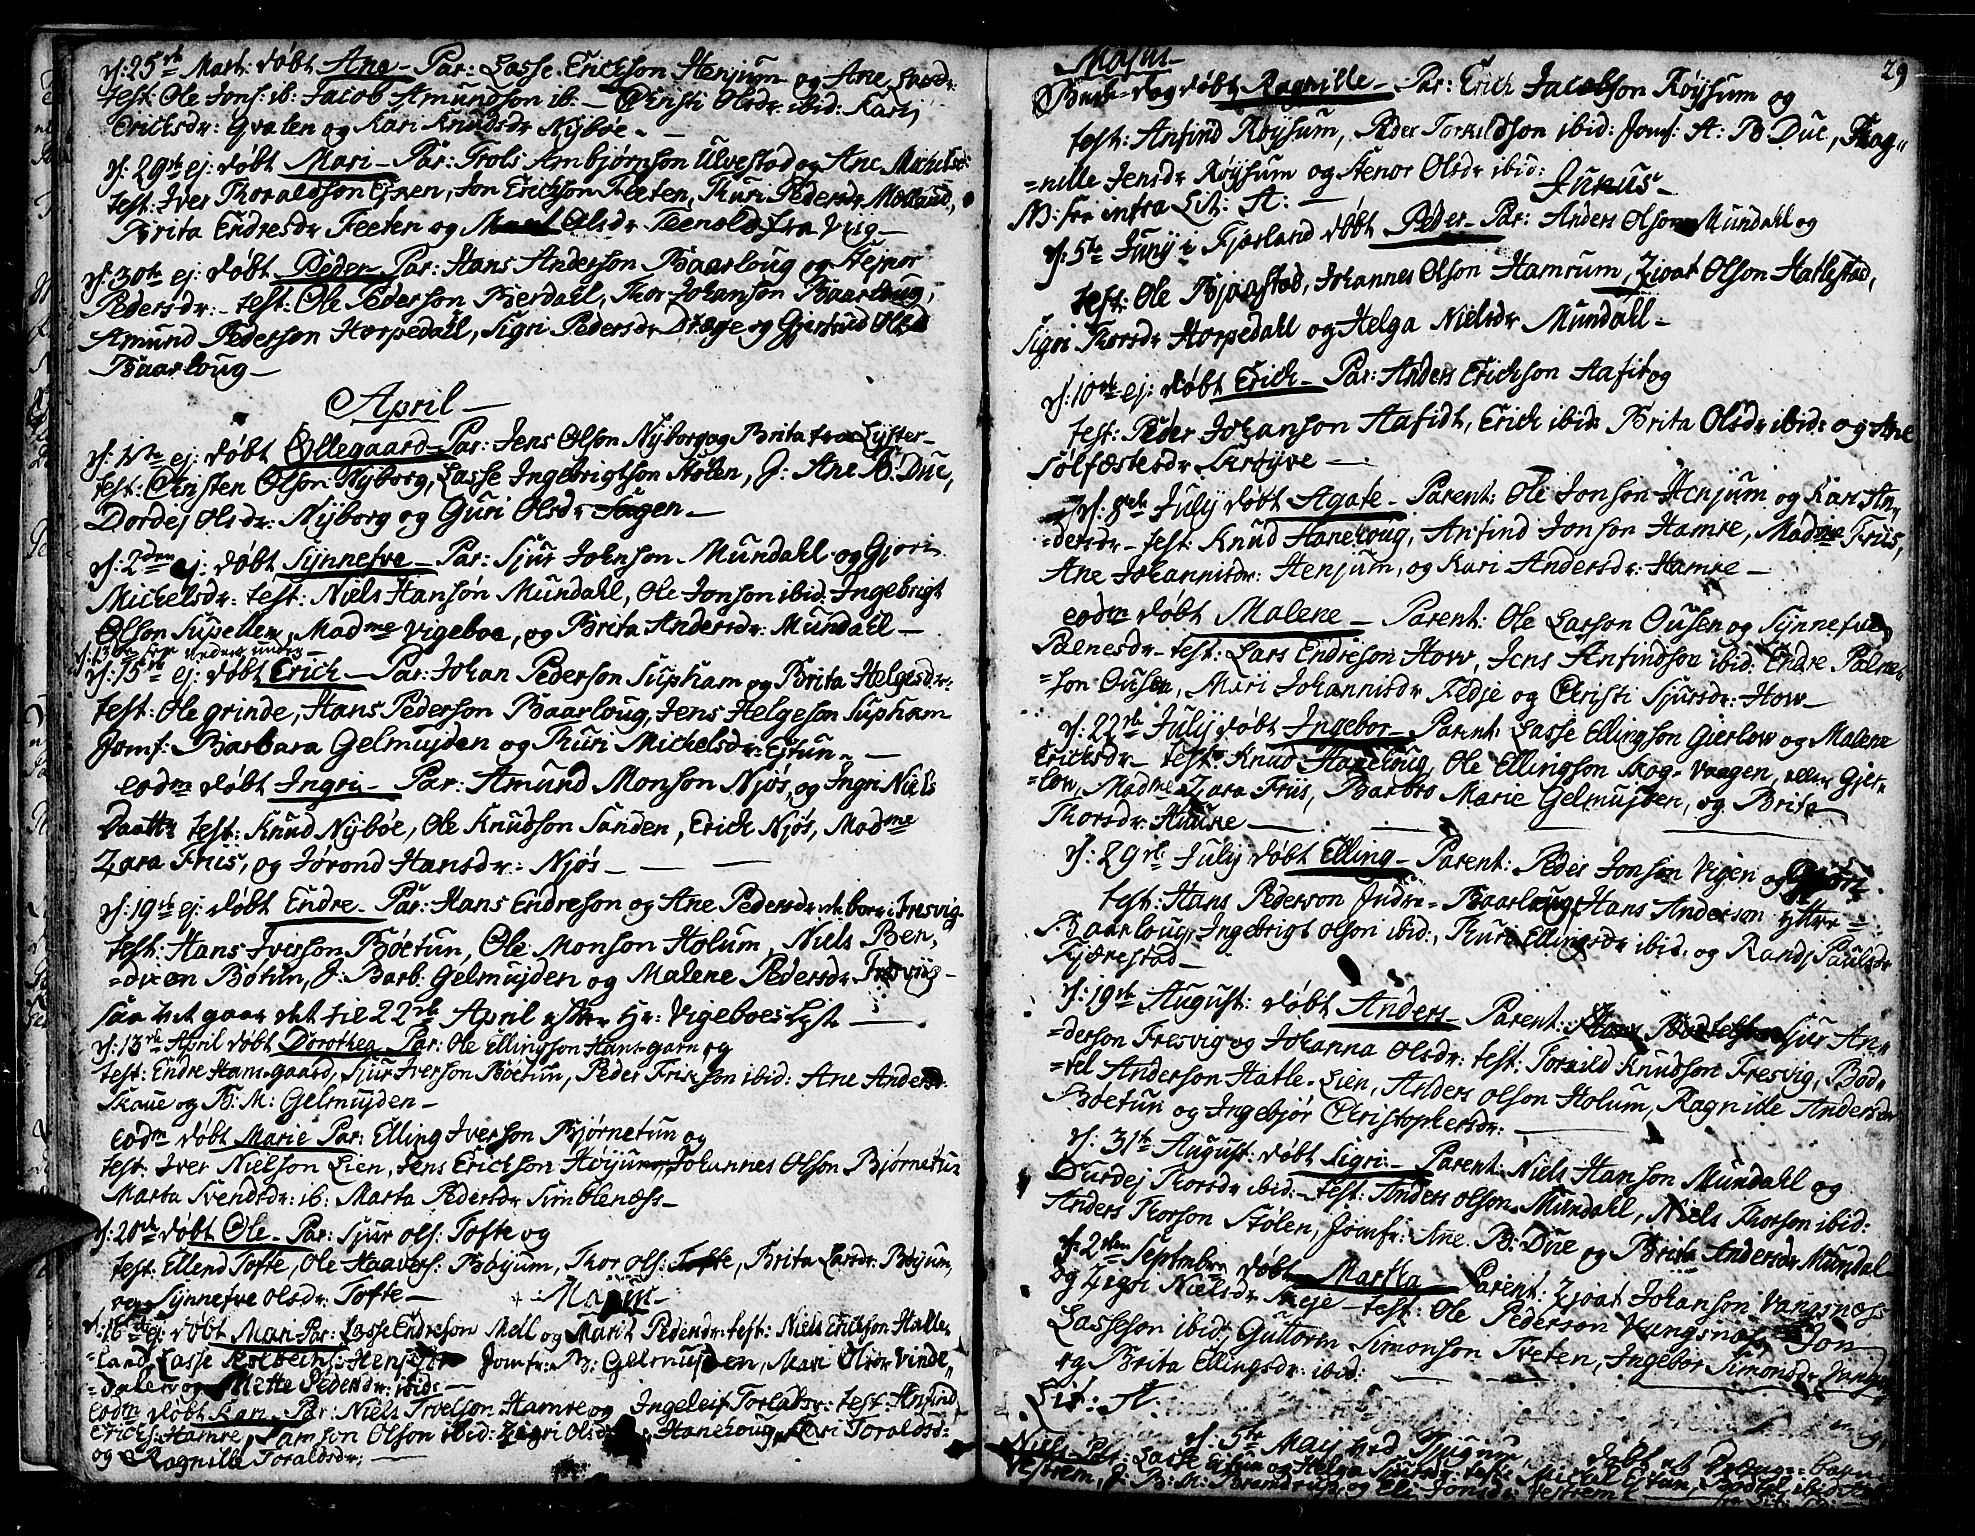 d: 25de Mart: døbt Ane – Par: Lasse Erickson Henjum og Ane Lassdr:
test: Ole Jons: ib: Jacob Amundson ib. – Christi Olsdr: ibid: Kari
Ericksdr: Qvalen og Kari Knudsdr Nybøe –
d: 29de ej: døbt Mari – Par: Trols Ambjørnson Ulvestad og Ane Michelsdr
test: Iver Thoraldson Eitren, Jon Erickson Feeten, Thuri Pedersdr Molland,
Brita Endresdr Feeten og Olsdr fra Viig –
d: 30te ej: døbt Peder – Par: Hans Anderson Baarloug og Steinor
Pedersdr: – test: Ole Pederson Berdahl, Thor Johanson Baarloug,
Amund Pederson Horpedahl, Sigri Pedersdr Dræge og Gjertrud Olsd
Baarloug –
April –
d: 1ste ej: døbt Øllegaard – Par: Jens Olson Nyborg og Brita fra Lyster –
test: Christen Olson Nyborg, Lasse Ingebrigtson Stølen, J: Ane B: Due,
Dordej Olsdr: Nyborg og Guri Olsdr –
d: 2den ej: døbt Synnefve – Par: Sjur Johnson Mundahl og Gjori
Michelsdr: test: Niels Hanson Mundahl, Ole Jonson ibid: Ingebrigt
Olson Supellen, Madme Vigeboe, og Brita Andersdr: Mundahl –
d: 13de see nedenunder –
d: 15de ej: døbt Erich – Par: Johan Pederson Supham og Brita Helgesdr:
test: Ole Grinde, Hans Pederson Baarloug, Jens Helgeson Supham
Jomf: Barbara Gelmuyden og Thuri Michelsdr: Estun –
eodm døbt Ingri – Par: Amund Monson Njøs, og Ingri Niels
Daatt: test: Knud Nybøe, Ole Knudson Sanden, Erich Njøs, Madme
Zara Friis, og Jørond Hansdr: Njøs –
d: 19de ej: døbt Endre – Par: Hans Endreson og Ane Pedersdr de boe i Fresvig
test: Hans Iverson Bøetun, Ole Monson Holum, Niels Ben,
=dixen Bøtun, J: Barb: Gelmuyden og Malene Pedersdr Fresviig –
saa vit gaar det til 22de April efter Hr: Vigeboes List –
d: 13de April døbt Dorothea Par: Ole Ellingson Hams-gaen og
test: Endre Ham-gaard, Sjur Iverson Bøetun, Peder Erikson ibid: Ane Andersdr:
Skaue og B: M: Gelmuyden –
eodm døbt Marie Par: Elling Iverson Bjørnetun og
test: Iver Nielson Lien, Jens Erickson Høyum, Johannes Olson Bjørnetun
Marta Svendsdr: ib: Marta Pedersdr Simblenæss –
d: 20de døbt Ole – Par: Sjur Ols: Tofte og
test: Ellend Tofte, Ole Haavers: Bøyum, Thor Ols: Tofte, Brita Larsdr: Bøyum,
og Synnefve Olsdr: Tofte –
Majus –
d: 16de ej: døbt Mari Par: Lasse Endreson Mell og Marit Pedersdr: test: Niels Erickson Halle,
=land, Lasse Jomfr: B: Gelmuyden, Mari Olsdr Vinde,,
=dalen og Mette Pedersdr: ibid: –
eodm døbt Kari – Par: Niels Troelson Hamre og Ingeleif Torladsdr: test: Anfind
Ericks: Hamre, Samson Olson ibid: Zigri Olsd Haneloug, Kari Toraldsd:
og Ragnille Toraldsdr: –
29
Majus
Buss-dag døbt Ragnille – Par: Erich Jacobson Røysum og
test: Anfind Røysum, Peder Torkildson ibid: Jomf: A: B Due, Rag,,
=nille Jensdr Røysum og Stenor Olsdr ibid:
NB: see infra Lit: A: –
Junus –
d: 5te Junij i Fjærland døbt Peder – Par: Anders Olson Mundahl og
test: Ole Bjaastad, Johannes Olson Hamrum, Zjoat Olson Hatlestad,
Sigri Thorsdr Horpedahl og Helga Nielsdr Mundahl –
d: 10de ej: døbt Erich – Par: Anders Erickson Aafit og
test: Peder Johanson Aafidt, Erich ibid: Brita Olsdr: ibid: og Ane
Sølfæstesdr –
d: 8de Julij døbt Agate – Parent: Ole Jonson Henjum og Kari An,
=dersdr – test: Knud Haneloug, Anfind Jonson Hamre, Madme Friis,
Ane Johannisdr: Henjum, og Kari Andersdr: Hamre –
eodm døbt Malene – Parent: Ole Larson Ousen og Synnefve
Palnesdr – test: Lars Endreson How, Jens Anfindson ibid: Endre Palne,
=son Ousen, Mari Johannisdr Fedje og Christi Sjursdr: How –
d: 22de Julij døbt Ingebor – Parent: Lasse Ellingson Gierlow og Malene
Ericksdr – test: Knud Haneloug, Ole Ellingson Skog-Vaagen, eller Gjer,
=low, Madme Zara Friis, Barbro Marie Gelmuyden, og Brita
Thorsdr: Hauke –
d: 29de Julij døbt Elling – Parent: Peder Jonson Vigen og
test: Hans Pederson Indre-Baarloug, Hans Anderson yttre=
Baarloug, Ingebrigt Olson ibid:, Thuri Ellingsdr ibid: og Randj Paulsdr
Fjærestad –
d: 19de August: døbt Anders – Parent: Sjur An,,
=derson Fresvig og Johanna Olsdr: test: Torkild Knudson Fresvig, Bod,
=tel Anderson Hatle-Lien, Anders Olson Holum, Ragnille Andersdr
Bøetun og Ingebjør Christophersdr: –
d: 31te August: døbt Sigri – Parent: Niels Hanson Mundahl og
Durdej Thorsdr ibid: – test: Anders Olson Mundahl, Niels Thorson ibid:
Anders Thorson Stølen, Jomfr: Ane B: Due og Brita Andersdr Mundal
d: 2den Septembr døbt Martha – Parent: Zjoat Johanson Vangsnæss
og Zegri Nielsdr Meje – test: Ole Pederson Vangsnæs, Jon
Lasseson ibid:, Guttorm Simonson Tveten, Ingebor Simonsdr Vangs
og Brita Ellingsdr: ibid:
Lit: A.
d: 5te Maij ved Tjugum døbt et
Niels – Par: Lasse Estun og Helga Sjursdr: test: Michel Estun, Bodtel ibid:
Vestrem, J: B: M: Bramdrup, og Eli Jonsdr: Vestrem